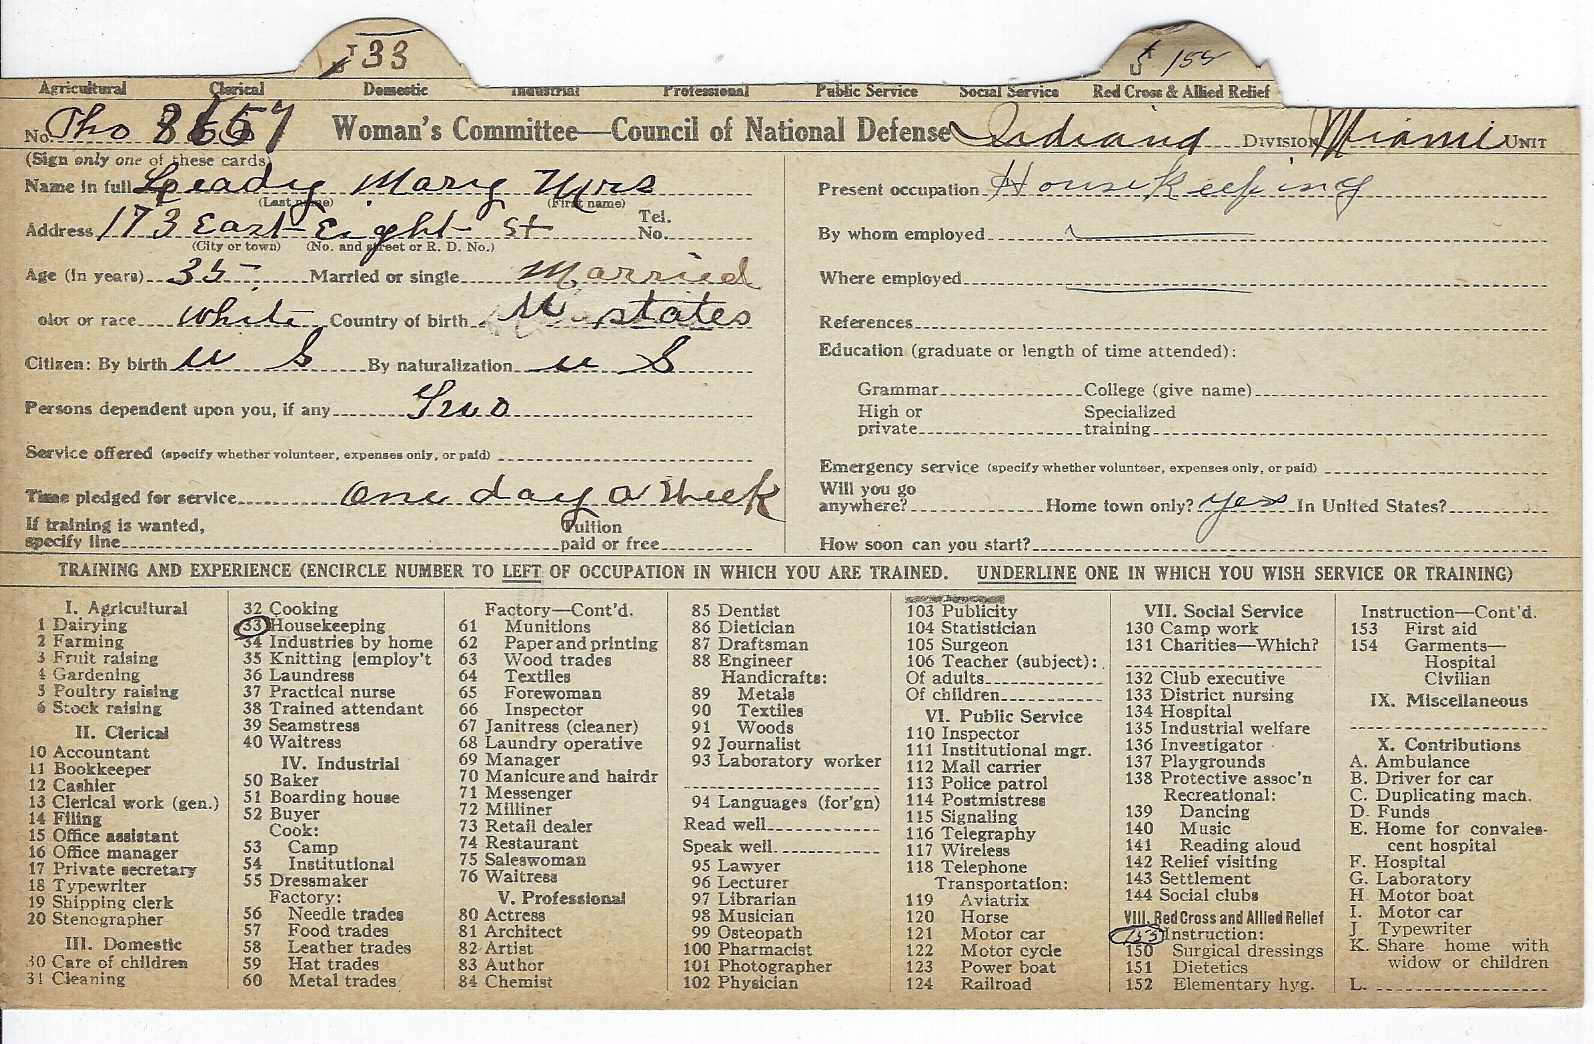 T 33
U 155
Agricultural Clerical Domestic Industrial Professional Public Service Social Service Red Cross & Allied Relief
No. Pho 8657 Woman's Committee—Council of National Defense Indiana DIVISION Miami UNIT
(Sign only one of these cards)
Name in full Leady Mary Mrs
(Last name) (First name)
Address 173 East Eight St Tel. No.
(City or town) (No. and street or R. D. No.)
Age (in years) 35 Married or single Married
olor or race white Country of birth U states
Citizen: By birth U S By naturalization U S
Persons dependent upon you, if any Two
Service offered (specify whether volunteer, expenses only, or paid)
Time pledged for service One day a Week
If training is wanted, specify line Tuition paid or free
Present occupation Housekeeping
By whom employed
Where employed
References
Education (graduate or length of time attended):
Grammar College (give name)
High or private Specialized training
Emergency service (specify whether volunteer, expenses only, or paid)
Will you go anywhere? Home town only? yes In United States?
How soon can you start?
TRAINING AND EXPERIENCE (ENCIRCLE NUMBER TO LEFT OF OCCUPATION IN WHICH YOU ARE TRAINED. UNDERLINE ONE IN WHICH YOU WISH SERVICE OR TRAINING)
I. Agricultural
1 Dairying
2 Farming
3 Fruit raising
4 Gardening
5 Poultry raising
6 Stock raising
II. Clerical
10 Accountant
11 Bookkeeper
12 Cashier
13 Clerical work (gen.)
14 Filing
15 Office assistant
16 Office manager
17 Private secretary
18 Typewriter
19 Shipping clerk
20 Stenographer
III. Domestic
30 Care of children
31 Cleaning
32 Cooking
33 Housekeeping
34 Industries by home
35 Knitting [employ't
36 Laundress
37 Practical nurse
38 Trained attendant
39 Seamstress
40 Waitress
IV. Industrial
50 Baker
51 Boarding house
52 Buyer
Cook:
53 Camp
54 Institutional
55 Dressmaker
Factory:
56 Needle trades
57 Food trades
58 Leather trades
59 Hat trades
60 Metal trades
Factory—Cont'd.
61 Munitions
62 Paper and printing
63 Wood trades
64 Textiles
65 Forewoman
66 Inspector
67 Janitress (cleaner)
68 Laundry operative
69 Manager
70 Manicure and hairdr
71 Messenger
72 Milliner
73 Retail dealer
74 Restaurant
75 Saleswoman
76 Waitress
V. Professional
80 Actress
81 Architect
82 Artist
83 Author
84 Chemist
85 Dentist
86 Dietician
87 Draftsman
88 Engineer
Handicrafts:
89 Metals
90 Textiles
91 Woods
92 Journalist
93 Laboratory worker
94 Languages (for'gn)
Read well
Speak well
95 Lawyer
96 Lecturer
97 Librarian
98 Musician
99 Osteopath
100 Pharmacist
101 Photographer
102 Physician
103 Publicity
104 Statistician
105 Surgeon
106 Teacher (subject):
Of adults
Of children
VI. Public Service
110 Inspector
111 Institutional mgr.
112 Mail carrier
113 Police patrol
114 Postmistress
115 Signaling
116 Telegraphy
117 Wireless
118 Telephone
Transportation:
119 Aviatrix
120 Horse
121 Motor car
122 Motor cycle
123 Power boat
124 Railroad
VII. Social Service
130 Camp work
131 Charities—Which?
132 Club executive
133 District nursing
134 Hospital
135 Industrial welfare
136 Investigator
137 Playgrounds
138 Protective assoc'n
Recreational:
139 Dancing
140 Music
141 Reading aloud
142 Relief visiting
143 Settlement
144 Social clubs
VIII. Red Cross and Allied Relief
155 Instruction:
150 Surgical dressings
151 Dietetics
152 Elementary hyg.
Instruction—Cont'd.
153 First aid
154 Garments—
Hospital
Civilian
IX. Miscellaneous
X. Contributions
A. Ambulance
B. Driver for car
C. Duplicating mach.
D. Funds
E. Home for convales-
cent hospital
F. Hospital
G. Laboratory
H Motor boat
I. Motor car
J Typewriter
K. Share home with
widow or children
L.